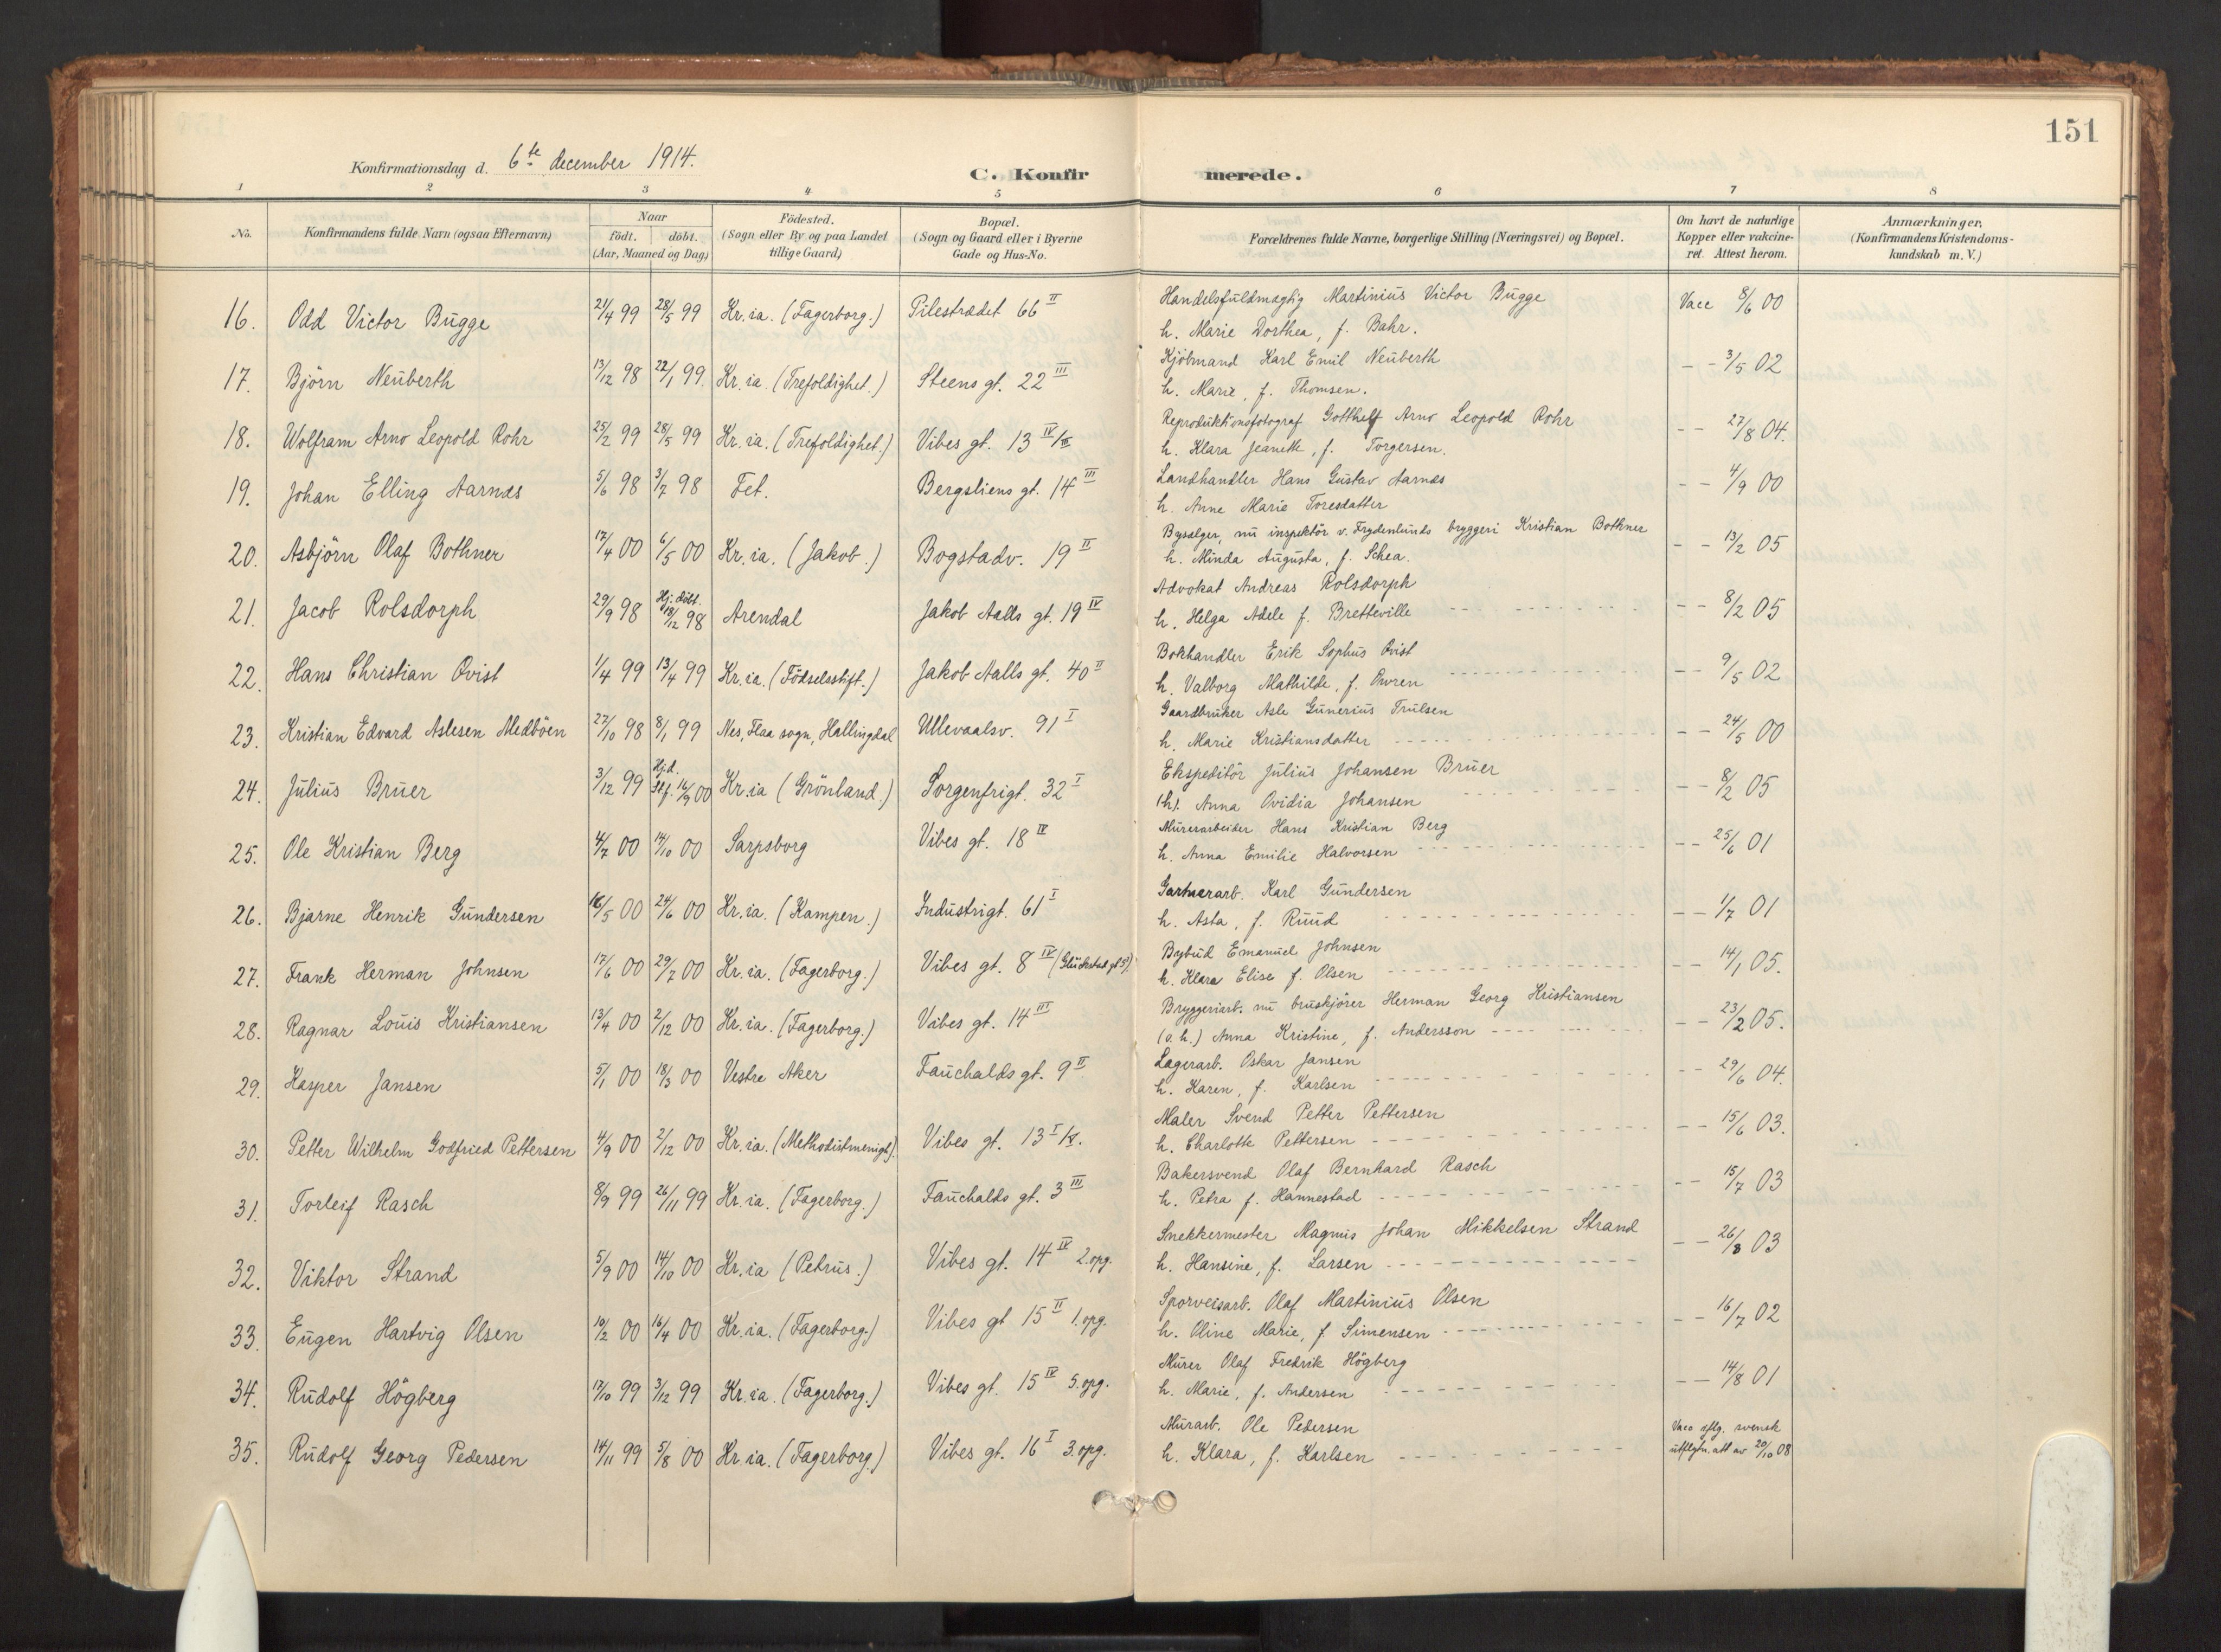 151
Konfirmationsdag d. 6te december 1914.
C. Konfirmerede.
1 2 3 4 5 6 7 8
No.
Konfirmandens fulde Navn (ogsaa Efternavn)
Naar
födt. döbt.
(Aar, Maaned og Dag)
Födested.
(Sogn eller By og paa Landet
tillige Gaard)
Bopæl.
(Sogn og Gaard eller i Byerne
Gade og Hus-No.
Forældrenes fulde Navne, borgerlige Stilling (Næringsvei) og Bopæl.
Om havt de naturlige
Kopper eller vakcine-
ret. Attest herom.
Anmærkninger,
(Konfirmandens Kristendoms-
kundskab m. V.)
16. Odd Victor Bugge 21/4 99 28/5 99 Kr.ia. (Fagerborg.) Pilestrædet 66 II Handelsfuldmægtig Martinius Victor Bugge Vacc 8/6 00
h. Marie Dorthea, f. Bahr.
17. Björn Neuberth 13/12 98 22/1 99. Kr.ia. (Trefoldighet.) Steens gt. 22 III Kjöbmand Karl Emil Neuberth - - 3/5 02
h. Marie, f. Thomsen.
18. Wolfram Arno Leopold Rohr 25/2 99 28/5 99 Kr.ia. (Trefoldighet.) Vibes gt. 13 Reproduktionsfotograf Gotthelf Arno Leopold Rohr - - 27/8 04.
h. Klara Jeanette, f. Torgersen.
19. Johan Elling Aarnæs 5/6 98 3/7 98 Fet. Bergsliens gt. 14 III Landhandler Hans Gustav Aarnæs - - 4/9 00
h. Anne Marie Toresdatter
20. Asbjörn Olaf Bothner 17/4 00 6/5 00 Kr.ia. (Jakob.) Bogstadv. 19 II Bysælger, nu inspektör v. Frydenlunds bryggeri Kristian Bothner - - 13/2 05
h. Minda Augusta, f. Schea.
21. Jacob Rolsdorph 29/9 98 Hj. döbt. 18/12 98 Arendal Jakob Aalls gt. 19 IV Advokat Andreas Rolsdorph - - 8/2 05
h. Helga Adele f. Bretteville
22. Hans Christian Qvist 1/4 99 13/4 99 Kr.ia. (Födselsstift.) Jakob Aalls gt. 40 II Bokhandler Erik Sophus Qvist - - 9/5 02
h. Valborg Mathilde, f. Owren
23. Kristian Edvard Aslesen Medböen 27/10 98 8/1 99 Nes, Flaa sogn, Hallingdal Ullevaalsv. 91 I Gaardbruker Asle Gunerius Trulsen - - 24/5 00
h. Marie Kristiansdatter
24. Julius Bruer 3/12 99 Hj.d. Stf. 16/9 00 Kr.ia (Grönland.) Sorgenfrigt. 32 I Ekspeditör Julius Johansen Bruer - - 8/2 05
(h). Anna Ovidia Johansen
25. Ole Kristian Berg 4/7 00 14/10 00 Sarpsborg Vibes gt. 18 IV Murerarbeider Hans Kristian Berg - - 25/6 01
h. Anna Emilie Halvorsen
26. Bjarne Henrik Gundersen 16/5 00 24/6 00 Kr.ia. (Kampen.) Industrigt. 61 I Gartnerarb. Karl Gundersen - - 1/7 01
h. Asta, f. Ruud
27. Frank Herman Johnsen 17/6 00 29/7 00 Kr.ia. (Fagerborg.) Vibes gt. 8 IV (Glückstad gt 5). Bybud Emanuel Johnsen - - 14/1 05.
h. Klara Elise f. Olsen
28. Ragnar Louis Kristiansen 13/4 00 2/12 00 Kr.ia. (Fagerborg.) Vibes gt. 14 III Bryggeriarb. nu bruskjörer Herman Georg Kristiansen - - 23/2 05.
(o.h.) Anna Kristine, f. Andersson
29. Kasper Jansen 5/1 00 18/3 00 Vestre Aker Fauchalds gt. 9 II Lagerarb. Oskar Jansen - - 29/6 04.
h. Karen, f. Karlsen
30. Petter Wilhelm Godfried Pettersen 4/9 00 2/12 00 Kr.ia. (Methodistmenigh.) Vibes gt. 13 Maler Svend Petter Pettersen - - 15/6 03.
h. Charlotte Pettersen
31. Torleif Rasch 8/9 99 26/11 99 Kr.ia. (Fagerborg.) Fauchalds gt. 3 III Bakersvend Olaf Bernhard Rasch - - 15/7 03
h. Petra f. Hannestad
32. Viktor Strand 5/9 00 14/10 00 Kr.ia (Petrus.) Vibes gt. 14 IV 2.opg. Snekkermester Magnus Johan Mikkelsen Strand - - 26/8 03
h. Hansine, f. Larsen
33. Eugen Hartvig Olsen 10/2 00 16/4 00 Kr.ia. (Fagerborg.) Vibes gt 15 II 1.opg. Sporveisarb. Olaf Martinius Olsen - - 16/7 02
h. Oline Marie, f Simensen
34. Rudolf Högberg 17/10 99 3/12 99 Kr.ia. (Fagerborg.) Vibes gt. 15 IV 5.opg. Murer Olaf Fredrik Högberg - - 14/8 01
h. Marie, f. Andersen
35. Rudolf Georg Pedersen 14/11 99 5/8 00 Kr.ia. (Fagerborg.) Vibes gt. 16 I 3.opg. Murarb. Ole Pedersen Vacc iflg. svensk
h. Klara, f. Karlsen utflytn. att av 20/10 08